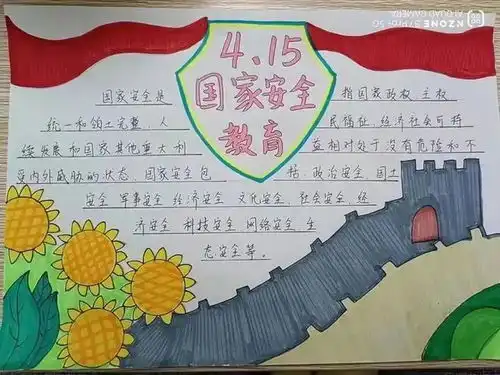 4.15
国家安全
教育
国家安全是指国家政权、主权
统一和领土完整、人民福祉、经济社会可持
续发展和国家其他重大利益相对处于没有危险和不
受内外威胁的状态，国家安全包括：政治安全、国土
安全、军事安全、经济安全、文化安全、社会安全、经
济安全、科技安全、网络安全、生
态安全等。